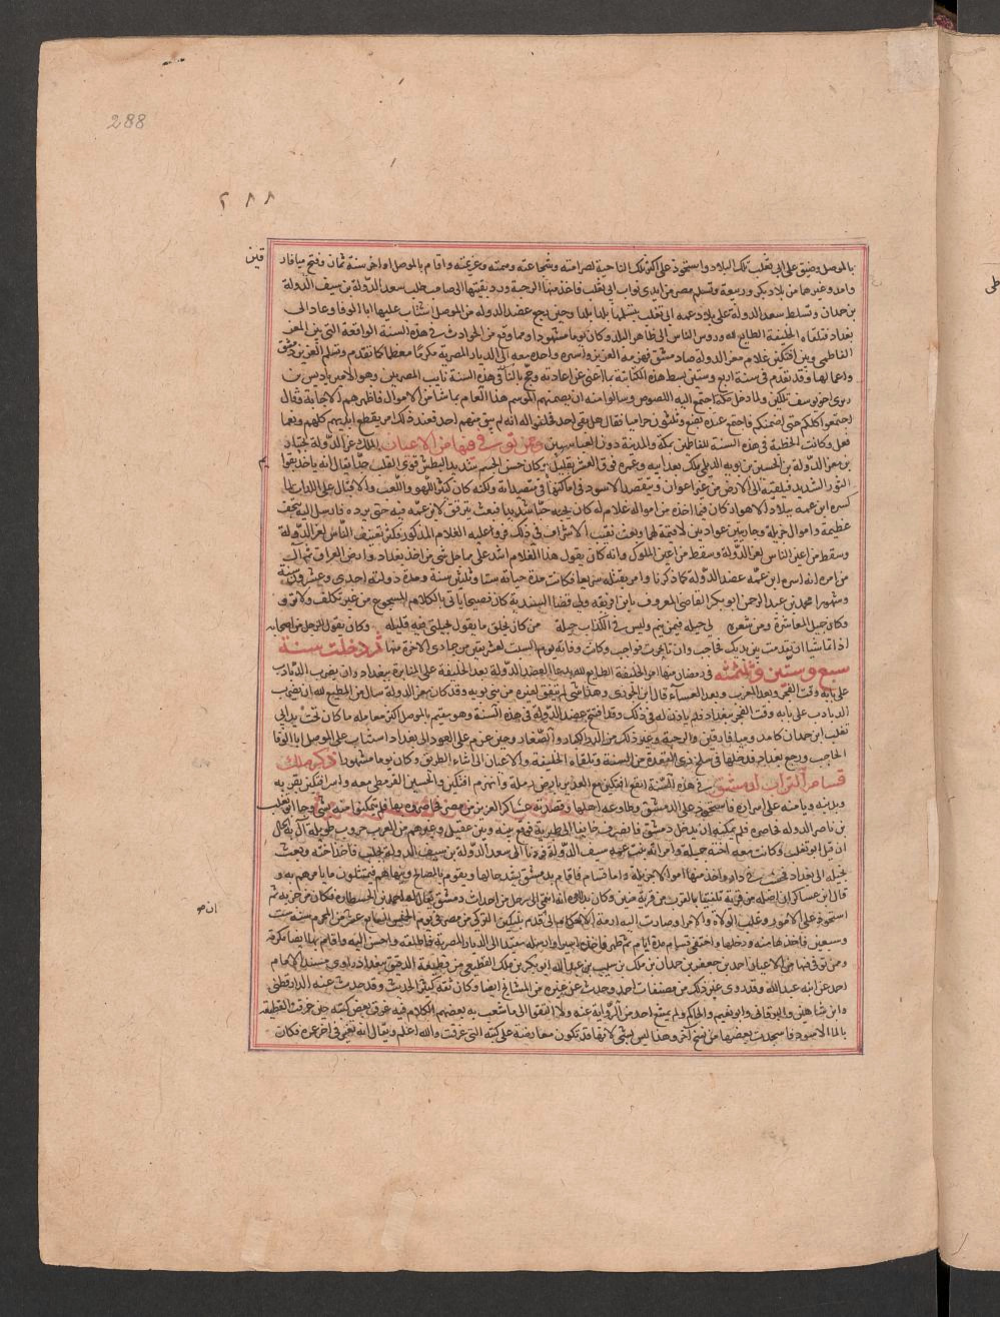 288
٢٨٨
بالموصل وضيق على ابي تغلب تلك البلاد واستحوذ على اكثر تلك الناحية لصرامته وشجاعته وهمته وعزيمته واقام بالموصل اواخر سنة ثمان وفتح ميافار
قين
وامد وغيرها من بلاد بكر وربيعة وتسلم مضر من ايدي نواب ابي تغلب فاخذ منها الرحبة ورد بقيتها الى صاحب حلب سعد الدولة بن سيف الدولة
بن حمدان وتسلط سعد الدولة على بلاد عمه ابي تغلب يتسلمها بلدا بلدا وحين رجع عضد الدولة من الموصل استناب عليها ابا الوفا وعاد الى
بغداد فتلقاه الخليفة الطايع لله ورؤس الناس الى ظاهر البلد وكان يوما مشهودا ومما وقع من الحوادث في هذه السنة الواقعة التي بين المعز
الفاطمي وبين افتكين غلام معز الدولة صاحب دمشق فهزمه العزيز واسره واخذه معه الى الديار المصرية مكرما معظما كما تقدم وتسلم العزيز دمشق
واعمالها وقد تقدم في سنة اربع وستين بسط هذه الكاينة بما اغنى عن اعادته وحج بالناس في هذه السنة نايب المصريين وهو الامير باديس بن
زيري اخو يوسف بلكين ولما دخل مكة اجتمع اليه اللصوص وسالوا منه ان يضمنهم الموسم هذا العام بما شا من الاموال فاظهر لهم الاجابة وقال
اجتمعوا كلكم حتى اضمنكم فاجتمع عنده بضع وثلثون حراميا فقال هل بقى احد فحلفوا له انه لم يبق منهم احد فعند ذلك امر بقطع ايديهم كلهم ونعما
فعل وكانت الخطبة في هذه السنة للفاطميين بمكة والمدينة دون العباسيين وممن توفي فيها من الاعيان الملك عز الدولة بختيار
بن معز الدولة بن الحسين بن بويه الديلمي ملك بعد ابيه وعمره فوق العشرين بقليل وكان حسن الجسم شديد البطش قوي القلب جدا يقال انه ياخذ بقوا
يم
الثور الشديد فيلقيه الى الارض من غير اعوان ويقصد الاسود في اماكنها في متصيداته ولكنه كان كثير اللهو واللعب والاقبال على اللذات لما
كسره ابن عمه ببلاد الاهواز كان فيما اخذ من امواله غلام له كان يحبه حبا شديدا فبعث يترقق لابن عمه فيه حتى يرده فارسل اليه بتحف
عظيمة واموال جزيلة وجاريتين عوادتين لا قيمة لهما وبعث نقيب الاشراف في ذلك فرد عليه الغلام المذكور فكثر تعنيف الناس لعز الدولة
وسقط من اعين الناس لعز الدولة وسقط من اعين الملوك وانه كان يقول هذا الغلام اشد علي مما حل بي من اخذ بغداد وارض العراق ثم آل
من امره انه اسره ابن عمه عضد الدولة كما ذكرنا وامر بقتله سريعا فكانت مدة حياته ستا وثلثين سنة ومدة دولته احدى وعشرين سنة
وشهورا محمد بن عبد الرحمن ابو بكر القاضي المعروف بابن قريعة ولي قضا السندية كان فصيحا ياتي بالكلام المسجوع من غير تكلف ولا تردد
وكان جميل المعاشرة ومن شعره لي حيلة فيمن ينم وليس في الكذاب حيلة من كان يخلق ما يقول فحيلتي فيه قليلة وكان يقول للرجل من اصحابه
اذا تماشيا ان تقدمت بين يديك فحاجب وان تاخرت فواجب وكانت وفاته يوم السبت لعشر بقين من جمادى الاخرة منها ثم دخلت سنة
سبع وستين وثلثمئة في رمضان منها امر الخليفة الطايع لله بدعا لعضد الدولة بعد الخليفة على المنابر ببغداد وان يضرب الدبادب
على بابه وقت الفجر وبعد المغرب وبعد العشاء قال ابن الجوزي وهذا شي لم يتفق لغيره من بني بويه وقد كان معز الدولة سال من المطيع لله ان يضرب
الدبادب على بابه وقت الفجر ببغداد فلم ياذن له في ذلك وقد افتتح عضد الدولة في هذه السنة وهو مقيم بالموصل اكثر معاملة ما كان تحت يد ابي
تغلب ابن حمدان كامد وميافارقين والرحبة وغير ذلك من المدن الكبار والصغار وحين عزم على العود الى بغداد استناب على الموصل ابا الوفا
الحاجب ورجع بغداد فدخلها في سلخ ذي القعدة من السنة وتلقاه الخليفة والاعيان الى اثناء الطريق وكان يوما مشهودا ذكر ملك
قسام التراب لدمشق في هذه السنة اتفع افتكين مع العزيز بارض رملة وانهزم افتكين والحسين القرمطي معه واسر افتكين
بن ناصر الدولة فحاصره فلم يمكنه ان يدخل دمشق فانصرف خايبا الى طبرية فوقع بينه وبين بني عقيل وغيرهم من العرب حروب طويلة آل به الحال
ان قتل ابو تغلب وكانت معه اخته جميلة وامراته بنت عمه سيف الدولة فردتا الى سعد الدولة بن سيف الدولة بحلب فاخذ اخته وبعث
بجميلة الى بغداد فحبست في دار واخذ منها اموالا جزيلة واما قسام فاقام بدمشق يسد حالها ويقوم بالمصالح
ان ص
قال ابن عساكر ان اصله من قرية تلفيتا بالقرب من قرية منين وكان
استحوذ على الامور وغلب الولاة والامراء وصارت اليه ازمة الاحكام الى ان قدم بلتكين التركي من مصر في يوم الخميس السابع عشر من المحرم سنة ست
وسبعين فاخذها منه ودخلها واختفى قسام مدة ايام ثم ظهر فاخذه اسيرا وارسله مقيدا الى الديار المصرية فاطلقه واحسن اليه واقام بها ايضا مكرمة
وممن توفي فيها من الاعيان احمد بن جعفر بن حمدان بن ملك بن شبيب بن عبد الله ابو بكر بن ملك القطيعي من قطيعة الدقيق ببغداد راوي مسند الامام
احمد عن ابنه عبد الله وقد روى غير ذلك من مصنفات احمد وحدث عن غيره من المشايخ ايضا وكان ثقة كثير الحديث وقد حدث عنه الدارقطني
وابن شاهين والبرقاني وابو نعيم والحاكم ولم يمتنع احد من الرواية عنه ولا التفتوا الى ما شعب به بعضهم الكلام فيه غرق بعض كتبه حين غرقت القطيعة
بالماء الاسود فاستحدث بعضها من نسخ اخر وهذا ليس بشي لانها قد تكون معارضة على كتبه التي غرقت والله اعلم ويقال انه تغير في اخر عمره فكان